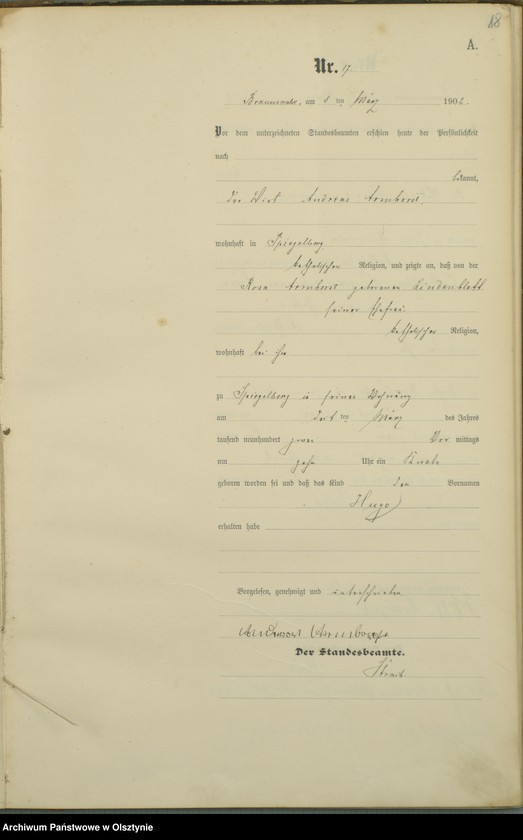 18
A.
Nr. 17
Braunswalde, am 8 ten März 1902.
Vor dem unterzeichneten Standesbeamten erschien heute der Persönlichkeit
nach
bekannt,
der Wirt Andreas Armborst
wohnhaft in Spiegelberg
katholischer Religion, und zeigte an, daß von der
Rosa Armborst geborenen Lindenblatt
seiner Ehefrau
katholischer Religion,
wohnhaft bei ihm
zu Spiegelberg in seiner Wohnung
am ten März des Jahres
tausend neunhundert zwei Vor mittags
um zehn Uhr ein Knabe
geboren worden sei und daß das Kind den Vornamen
Hugo
erhalten habe
Vorgelesen, genehmigt und unterschrieben
Andreas Armborst
Der Standesbeamte.
Archiwum Państwowe w Olsztynie